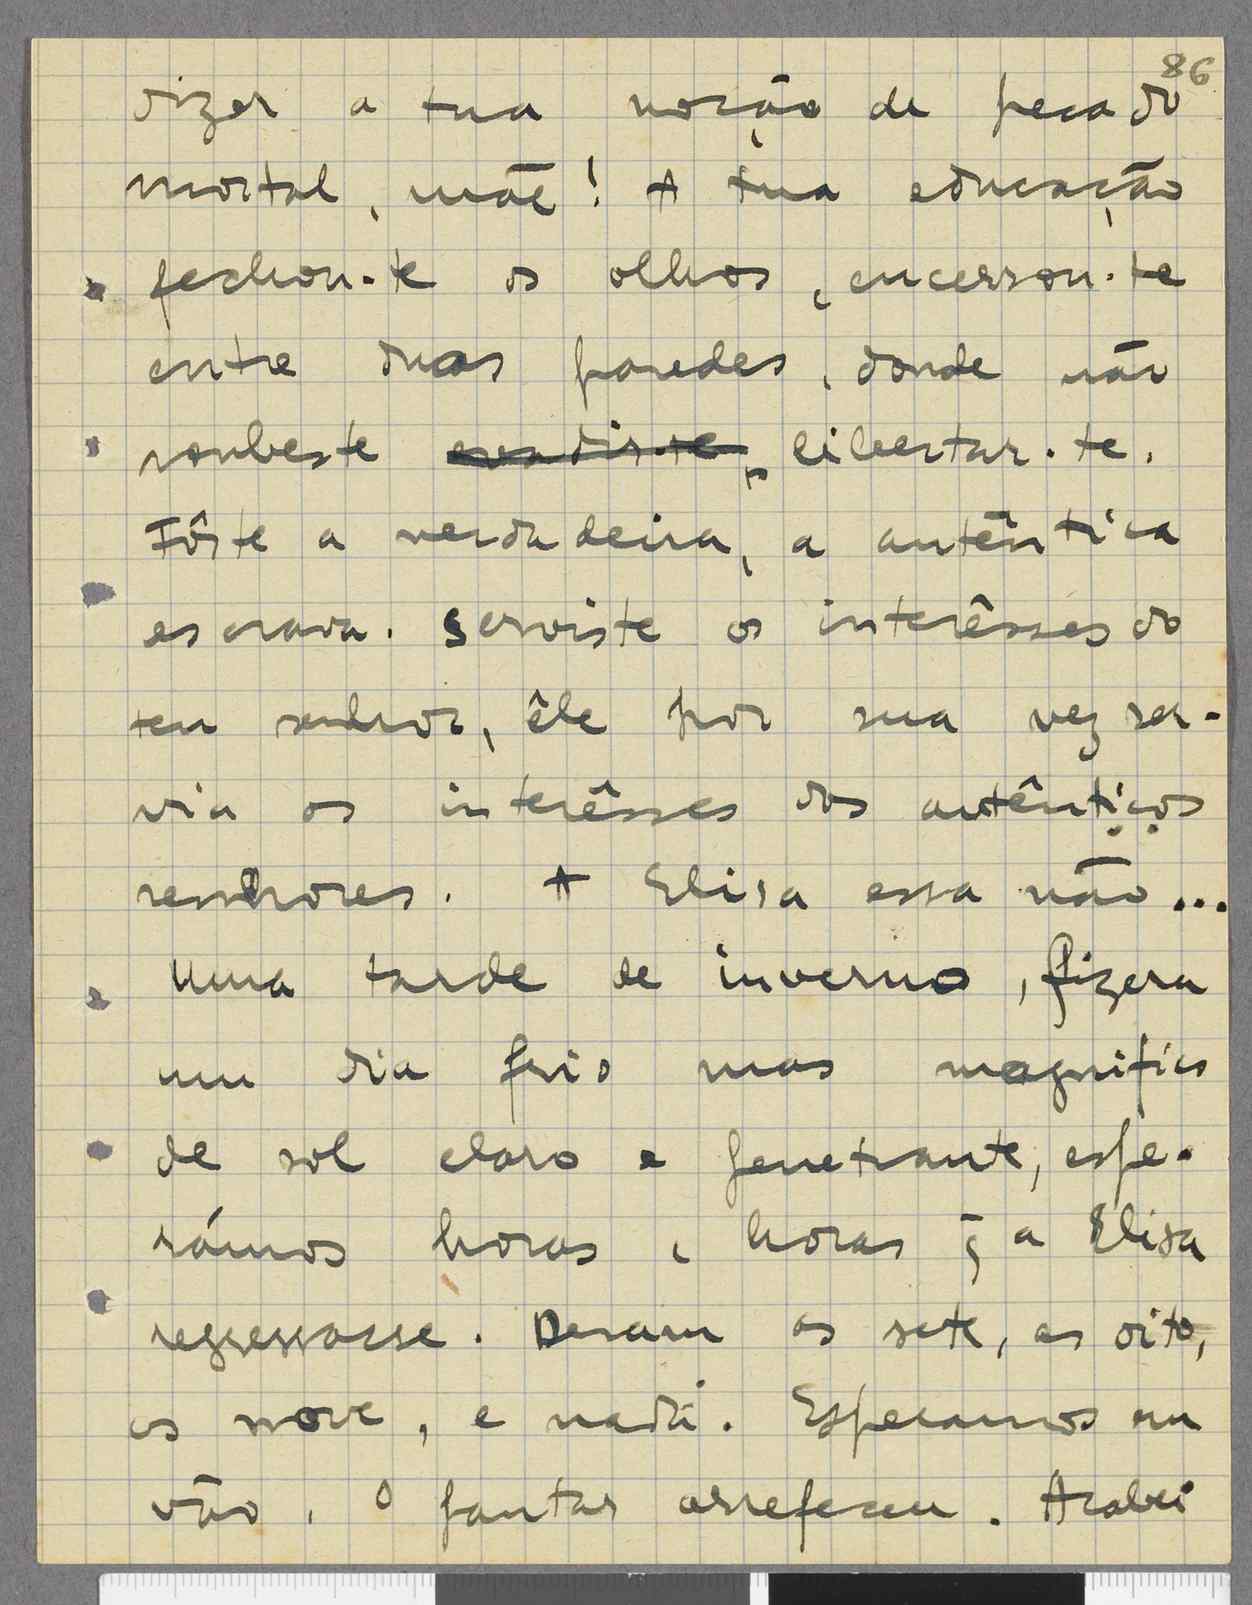 86
dizer a tua noção de pecado
mortal, mãe! A tua educação
fechou-te os olhos, encerrou-te
entre duas paredes, donde não
soubeste evadir-te, libertar-te.
Fôste a verdadeira, a autêntica
escrava. Serviste os interêsses do
teu senhor, êle por sua vez ser-
via os interêsses dos autênticos
senhores. A Elisa essa não...
Uma tarde de inverno, fizera
um dia frio mas magnífico
de sol claro e penetrante, espe-
rámos horas e horas q̄ a Elisa
regressasse. Deram as sete, as oito,
as nove, e nada. Esperamos em
vão. O jantar arrefeceu. Acabei